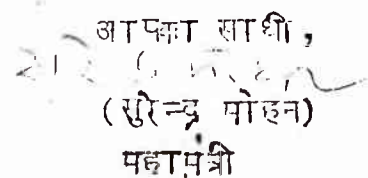 आपका साथी,
(सुरेन्द्र मोहन)
महामंत्री